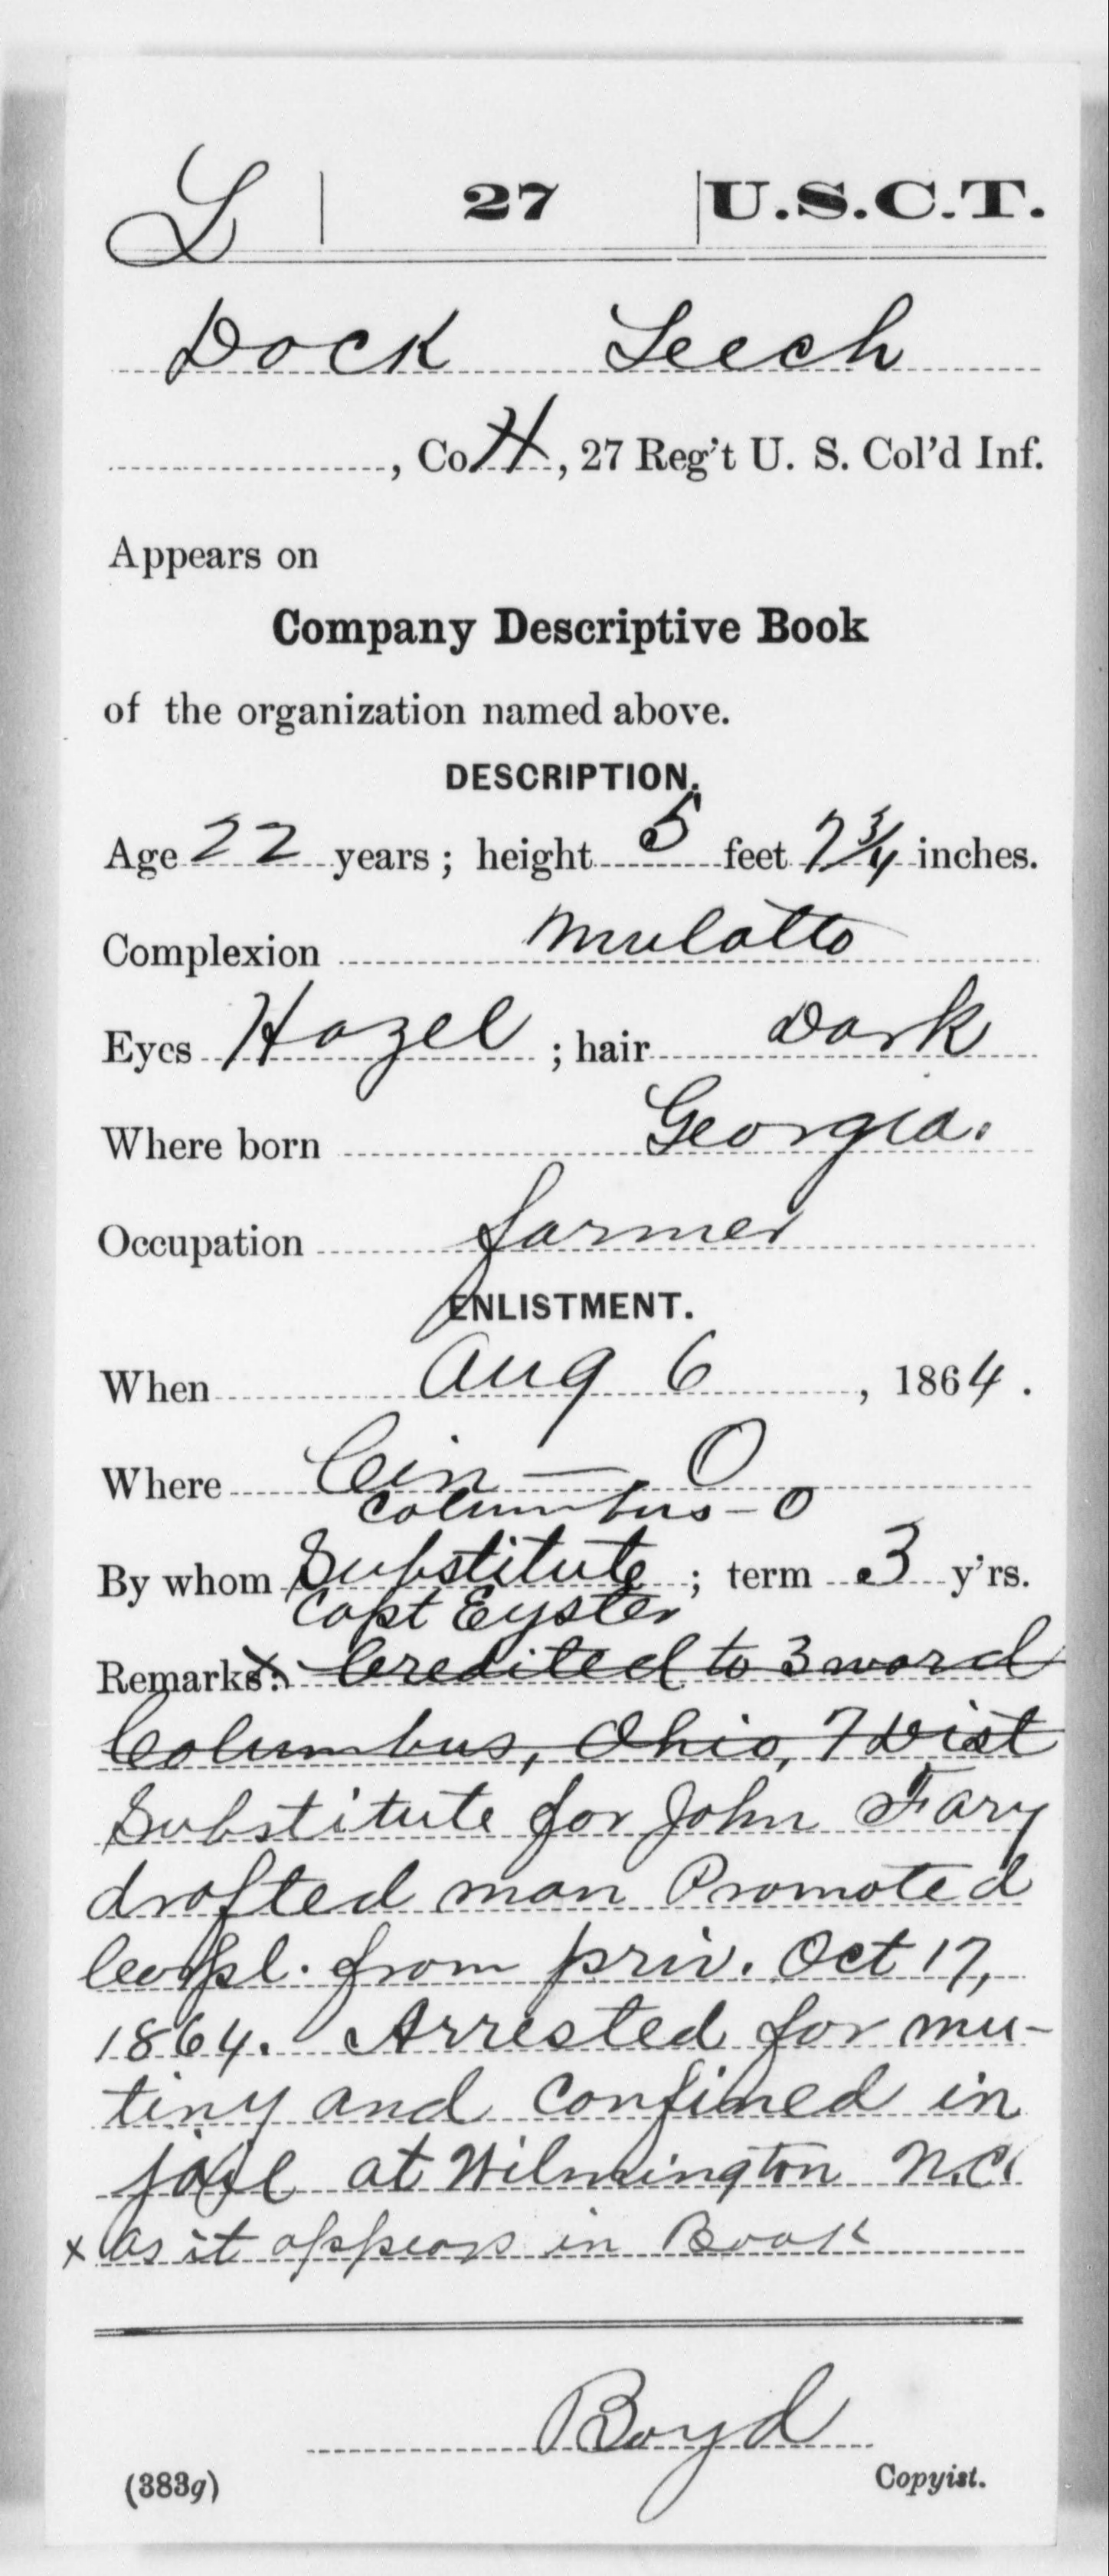 L | 27 | U.S.C.T.
Dock Leech
, Co. H, 27 Reg't U. S. Col'd Inf.
Appears on
Company Descriptive Book
of the organization named above.
DESCRIPTION.
Age 22 years; height 5 feet 7 3/4 inches.
Complexion Mulatto
Eyes Hazel; hair Dark
Where born Georgia.
Occupation farmer
ENLISTMENT.
When Aug 6, 1864.
Where Cin — O
Columbus - O
By whom Substitute; term 3 y'rs.
Capt Eyster
Remarks: x Credited to 3 ward
Columbus, Ohio, 7 Dist
Substitute for John Fary
drafted man Promoted
Corpl. from priv. Oct 17,
1864. Arrested for mu-
tiny and confined in
jail at Wilmington N.C.
x as it appears in Book
Boyd
(383g) Copyist.